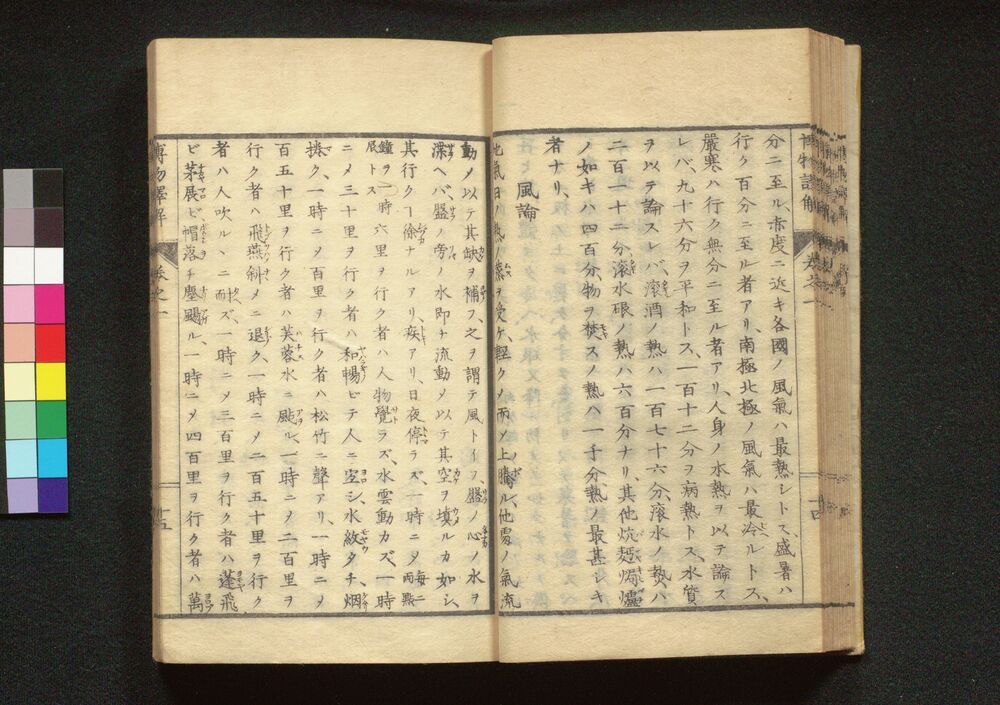 博物譯解 卷之一 十四
分ニ至ル、赤度ニ近キ各國ノ風氣ハ最熱シトス、盛暑ハ
行ク百分ニ至ル者アリ、南極北極ノ風氣ハ最冷ルトス、
嚴寒ハ行ク無分ニ至ル者アリ、人身ノ本熱ヲ以テ論ス
レバ、九十六分ヲ平和トス、一百十二分ヲ病熱トス、水質
ヲ以テ論スレバ、滾酒ノ熱ハ一百七十六分、滾水ノ熱ハ
二百一十二分、滾水銀ノ熱ハ六百分ナリ、其他炕麵焗爐
ノ如キハ四百分物ヲ焚スノ熱ハ一千分、熱ノ最甚シキ
者ナリ、
風論
地氣日ノ熱ノ蒸ヲ受ケ、輕クノ而ノ上騰ル、他處ノ氣流
動メ以テ其缺ヲ補フ之ヲ謂テ風トイフ、盤ノ心ノ水ヲ
深ヘバ、盤ノ旁ノ水即チ流動メ以テ其空ヲ填ルカ如シ、
其行ク徐ナルアリ、疾アリ、日夜停ラズ、一時ニメ 毎二雨點
鐘ヲ一時展トス 六里ヲ行ク者ハ人物覺ラズ、水雲動カズ、一時
ニメ三十里ヲ行ク者ハ和暢ビテ人ニ空シ、水紋タチ、烟
挑ク、一時ニメ百里ヲ行ク者ハ松竹ニ聲アリ、一時ニメ
百五十里ヲ行ク者ハ芙蓉水ニ颭ル、一時ニメ二百里ヲ
行ク者ハ飛燕斜メニ退ク、一時ニメ二百五十里ヲ行ク
者ハ人吹ルヽニ而ズ、一時ニメ三百里ヲ行ク者ハ蓬飛
ビ茅展ビ、帽落チ塵颺ル、一時ニメ四百里ヲ行ク者ハ萬
博物譯解 卷之一 十五